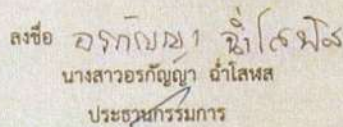 ลงชื่อ อรกัญญา ฉ่ำโสฬส
นางสาวอรกัญญา ฉ่ำโสฬส
ประธานกรรมการ